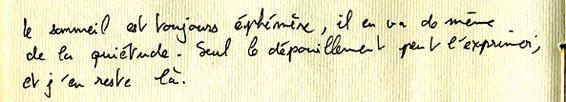 le sommeil est toujours éphémère, il en va de même
de la quiétude. Seul le dépouillement peut l'exprimer,
et j'en reste là.